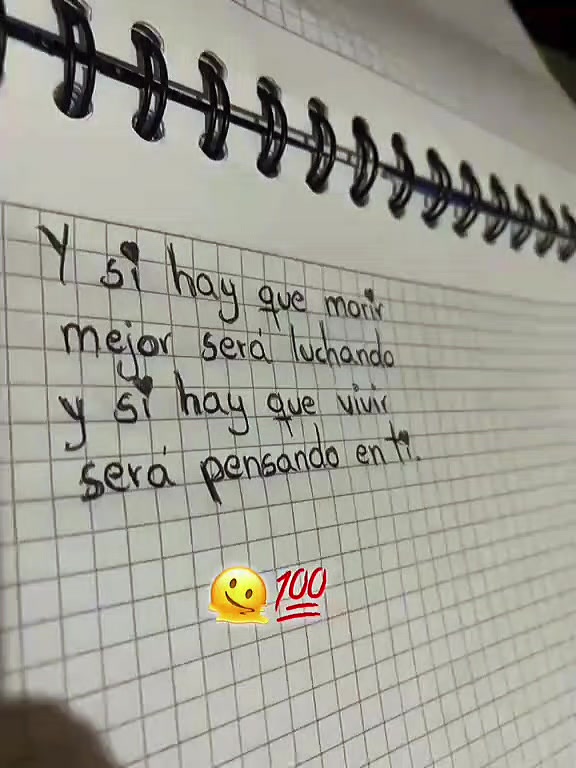 Y si hay que morir
mejor será luchando
y si hay que vivir
será pensando en ti.
🫠💯